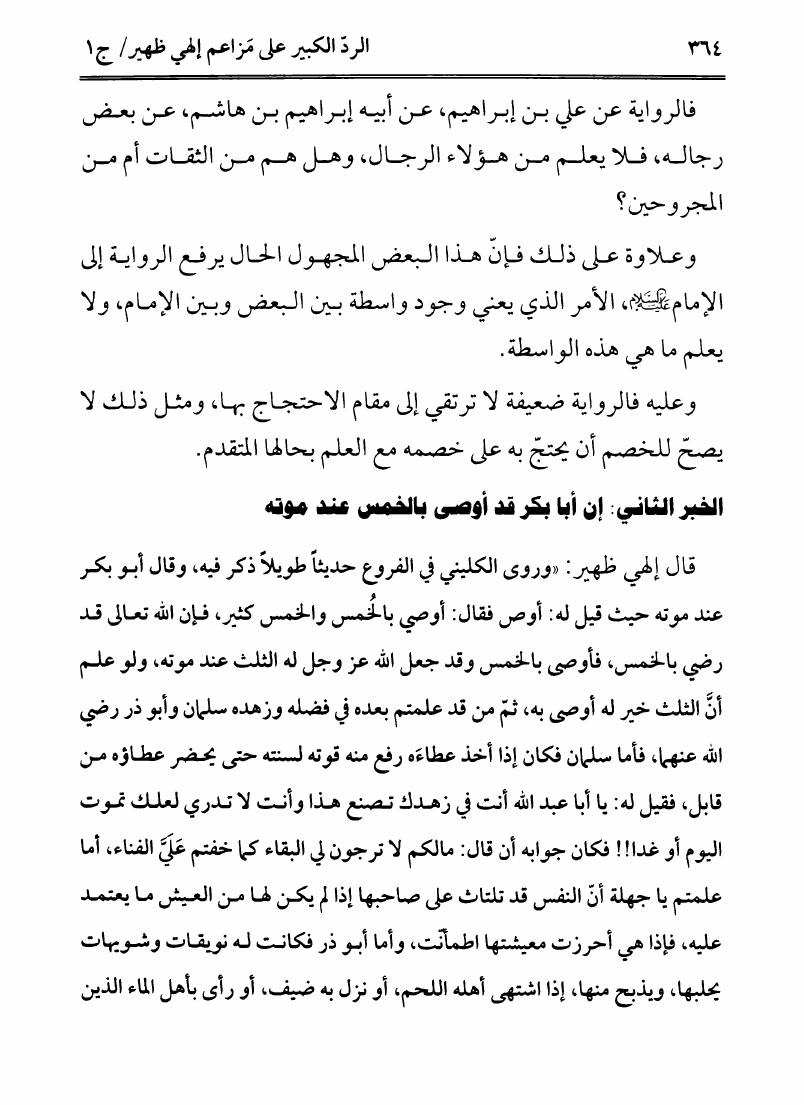 ٣٦٤
الردّ الكبير على مَزاعم إلهي ظهير/ ج١
فالرواية عن علي بن إبراهيم، عن أبيه إبراهيم بن هاشم، عن بعض
رجاله، فلا يعلم من هؤلاء الرجال، وهل هم من الثقات أم من
المجروحين؟
وعلاوة على ذلك فإنّ هذا البعض المجهول الحال يرفع الرواية إلى
الإمام عليه السلام، الأمر الذي يعني وجود واسطة بين البعض وبين الإمام، ولا
يعلم ما هي هذه الواسطة.
وعليه فالرواية ضعيفة لا ترتقي إلى مقام الاحتجاج بها، ومثل ذلك لا
يصحّ للخصم أن يحتجّ به على خصمه مع العلم بحالها المتقدم.
الخبر الثاني: إن أبا بكر قد أوصى بالخمس عند موته
قال إلهي ظهير: «وروى الكليني في الفروع حديثاً طويلاً ذكر فيه، وقال أبو بكر
عند موته حيث قيل له: أوص فقال: أوصي بالخُمس والخمس كثير، فإن الله تعالى قد
رضي بالخمس، فأوصى بالخمس وقد جعل الله عز وجل له الثلث عند موته، ولو علم
أنَّ الثلث خير له أوصى به، ثمّ من قد علمتم بعده في فضله وزهده سلمان وأبو ذر رضي
الله عنهما، فأما سلمان فكان إذا أخذ عطاءَه رفع منه قوته لسنته حتى يحضر عطاؤه من
قابل، فقيل له: يا أبا عبد الله أنت في زهدك تصنع هذا وأنت لا تدري لعلك تموت
اليوم أو غدا!! فكان جوابه أن قال: مالكم لا ترجون لي البقاء كما خفتم عَلَيَّ الفناء، أما
علمتم يا جهلة أنّ النفس قد تلتاث على صاحبها إذا لم يكن لها من العيش ما يعتمد
عليه، فإذا هي أحرزت معيشتها اطمأنّت، وأما أبو ذر فكانت له نويقات وشويهات
يحلبها، ويذبح منها، إذا اشتهى أهله اللحم، أو نزل به ضيف، أو رأى بأهل الماء الذين